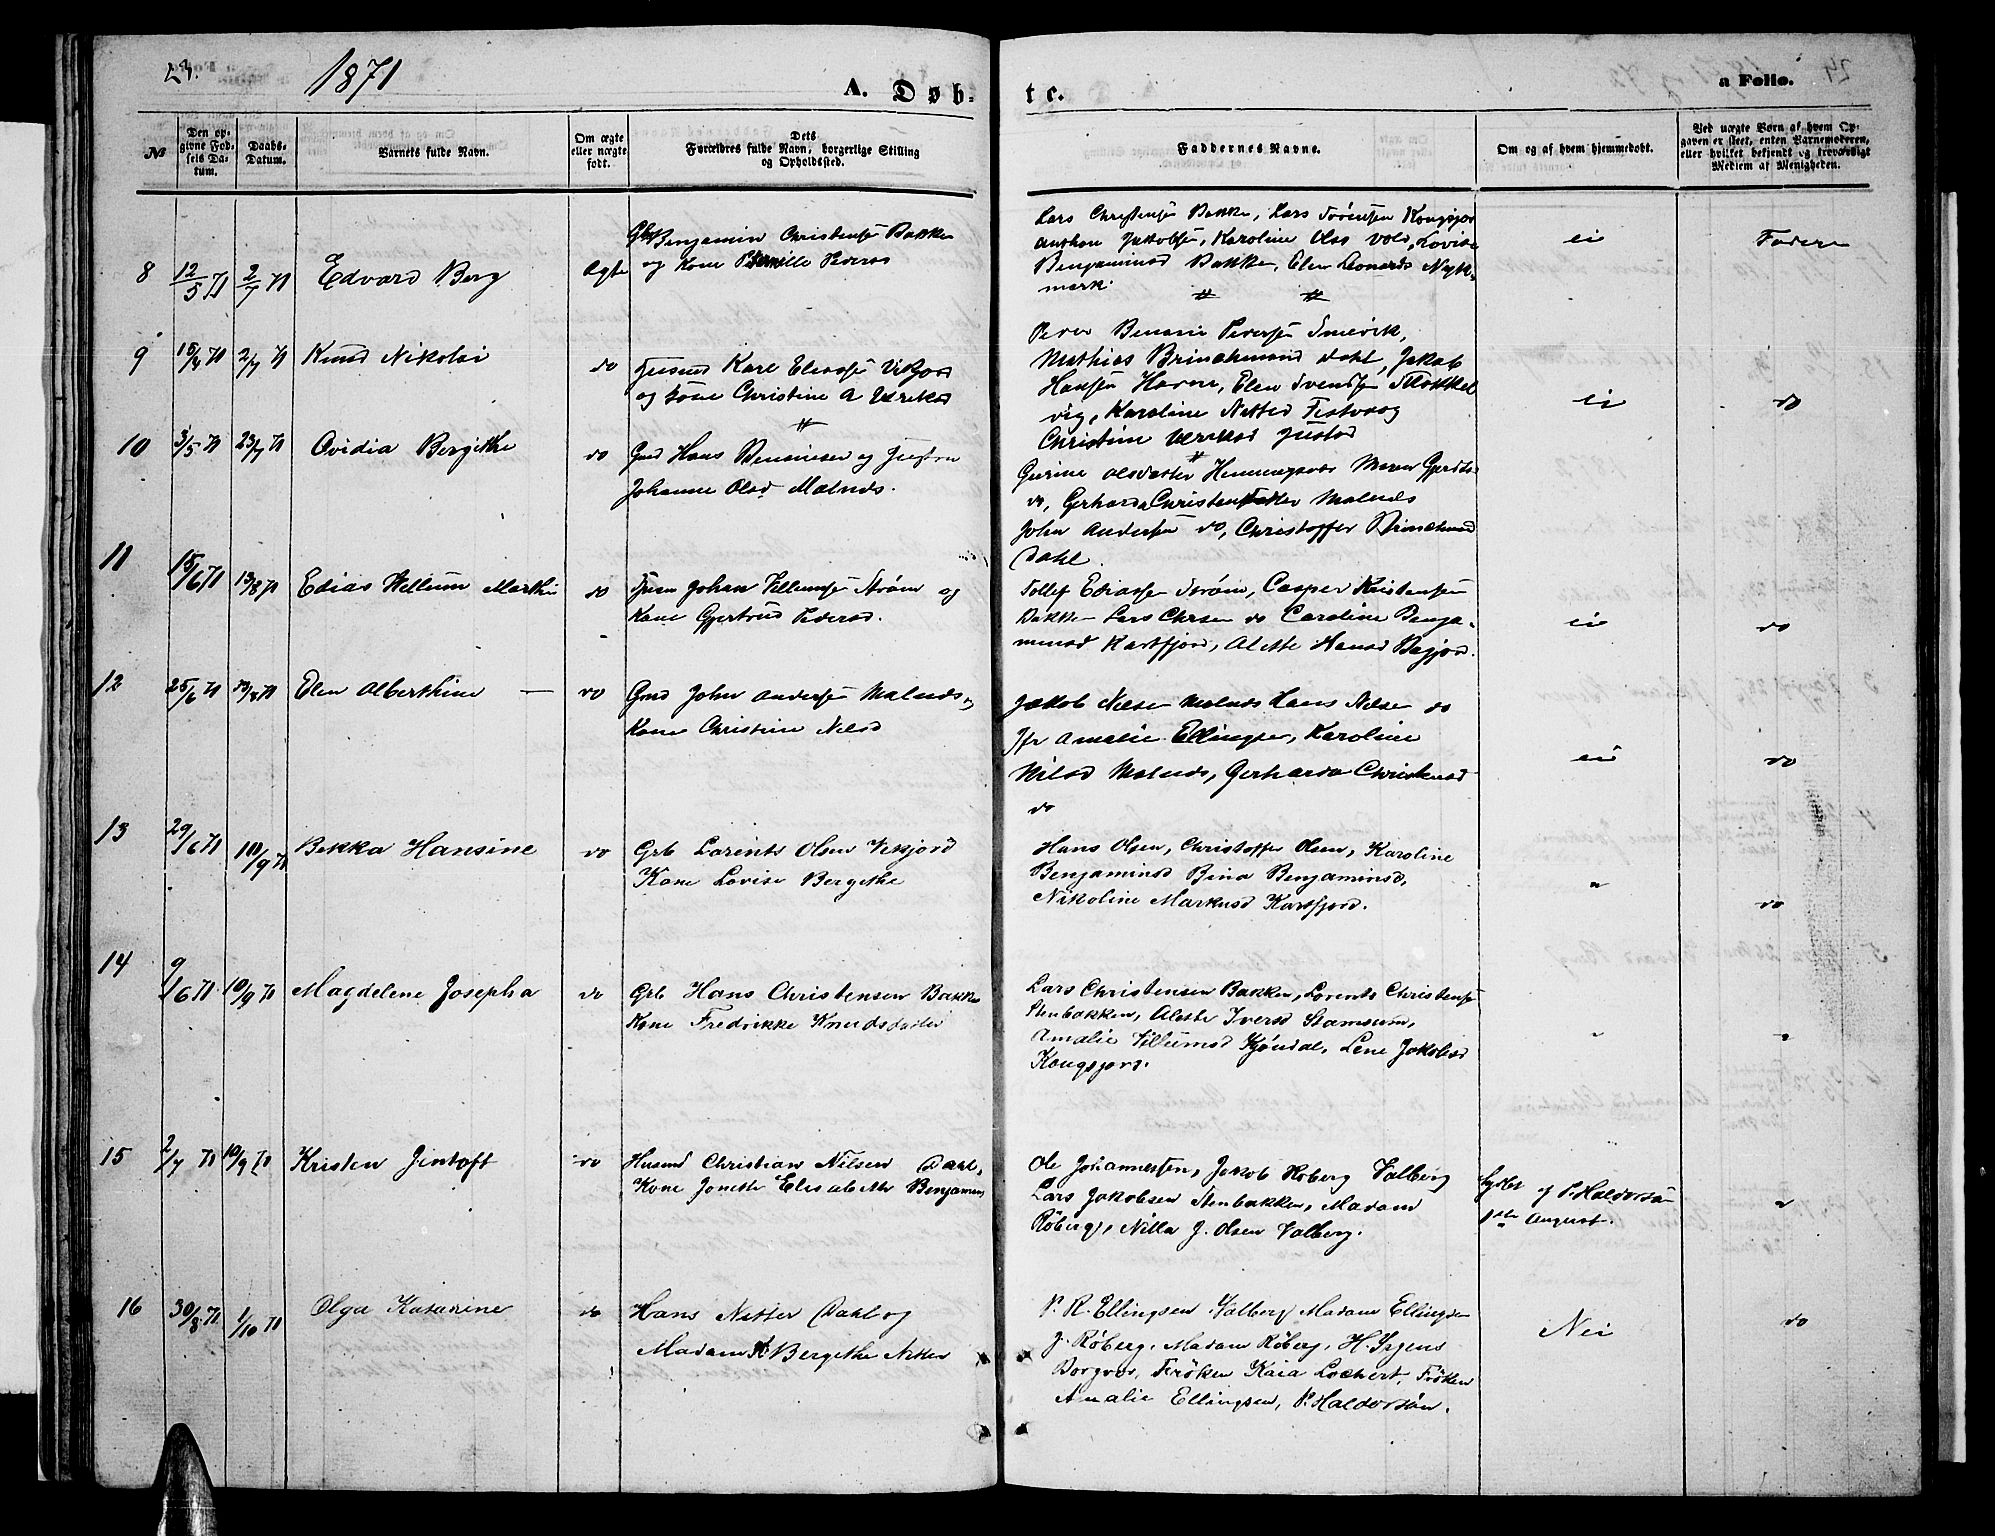 23.
1871
A. Døb-
te.
a Folio.
№
Den op-
givne Fød-
sels Da-
tum.
Daabs-
Datum.
Barnets fulde Navn.
Om ægte
eller uægte
født.
Dets
Forældres fulde Navn, borgerlige Stilling
og Opholdssted.
Faddernes Navne.
Om og af hvem hjemmedøbt.
Ved uægte Børn af hvem Op-
gaven er skeet, enten Barnemoderen,
eller hvilket bekjendt og troværdigt
Medlem af Menigheden.
8 12/5 71 2/7 71 Edvard Berg Ægte
Gbr Benjamin Christensen Bakken
og Kone Pernille Pedersd
Lars Christensen Bakken, Lars Sørensen Kongsjor
Anthon Jakobsen, Karoline Olsd Vold, Lovise
Benjaminsd Bakken, Elen Leonardsd Nyk-
mark.
ei
Faderen
9 15/4 71 2/7 71 Knud Nikolai do
Husmd Karl Eliassen Vikjord
og Kone Christine A Ulriksd
Peder Benoni Pedersen Smevik,
Mathias Brinchmand Dahl, Jakob
Hansen Havn, Elen Svendsen Stokkel
vig, Karoline Netted Festvaag
Christine Ulriksd Justad
ei
do
10 3/5 71 23/7 71 Ovidia Bergithe do
Gmd Hans Benonisen og Hustru
Johanne Olsd Malnæs.
Gurine Olsdatter Henningsvær Maren Gjertsd
do, Gerharda Christensdatter Malnæs
John Andersen do, Christoffer Brinchmd
Dahl.
11 15/6 71 13/8 71 Edias Wellum Marthin do
Husm Johan Villumsen Strøm og
Kone Gjertrud Pedersd.
Tollef Ediassen Strøm, Casper Kristensen
Bakken Lars Chrsen do Caroline Benja-
minsd Kartfjord, Alette Hansd Bøgjord.
ei
do
12 25/6 71 13/8 71 Elen Alberthine do
Gmd John Andersen Malnæs og
Kone Christine Nilsd
Jakob Nilsen Malnæs Hans Nilsen do
Jfr Amalie Ellingsen, Karoline
Nilsd Malnæs, Gerharda Christensd
do
ei
do
13 29/6 71 10/9 71 Bekka Hansine do
Grb Lorents Olsen Vikjord
Kone Lovise Bergithe
Hans Olsen, Christoffer Olsen, Karoline
Benjaminsd Bina Benjaminsd,
Nikoline Markusd Kartfjord.
"
do
14 9/6 71 10/9 71 Magdelene Josepha do
Grb Hans Christensen Bakken
Kone Fredrikke Knudsdatter
Lars Christensen Bakken, Lorents Christensen
Stenbakken, Alette Iversd Stamsum,
Amalie Villumsd Kjøndal, Lene Jakobsd
Kongsjord.
"
"
15 2/7 71 10/9 71 Kristen Jentoft do
Husmd Christian Nilsen Dahl,
Kone Jonette Elisabeth Benjamins
Ole Johannessen, Jakob Røberg Valberg
Lars Jakobsen Stenbakken, Madam
Røberg, Nilla J. Olsen Valberg.
af P. Haldorsøn
1ste August.
"
16 30/8 71 1/10 71 Olga Katarine do
Hans Netter Dahl og
Madam A Bergithe Netter
P. R. Ellingsen Valberg Madam Ellingsen
J. Røberg, Madam Røberg, H. Irgens
Borgvær, Frøken Kaia Lochert, Frøken
Amalie Ellingsen, P. Haldorsøn.
Nei
do